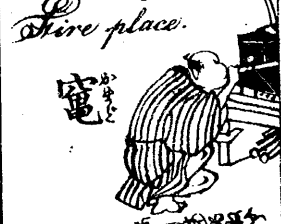 Fire place.
竈
かまど